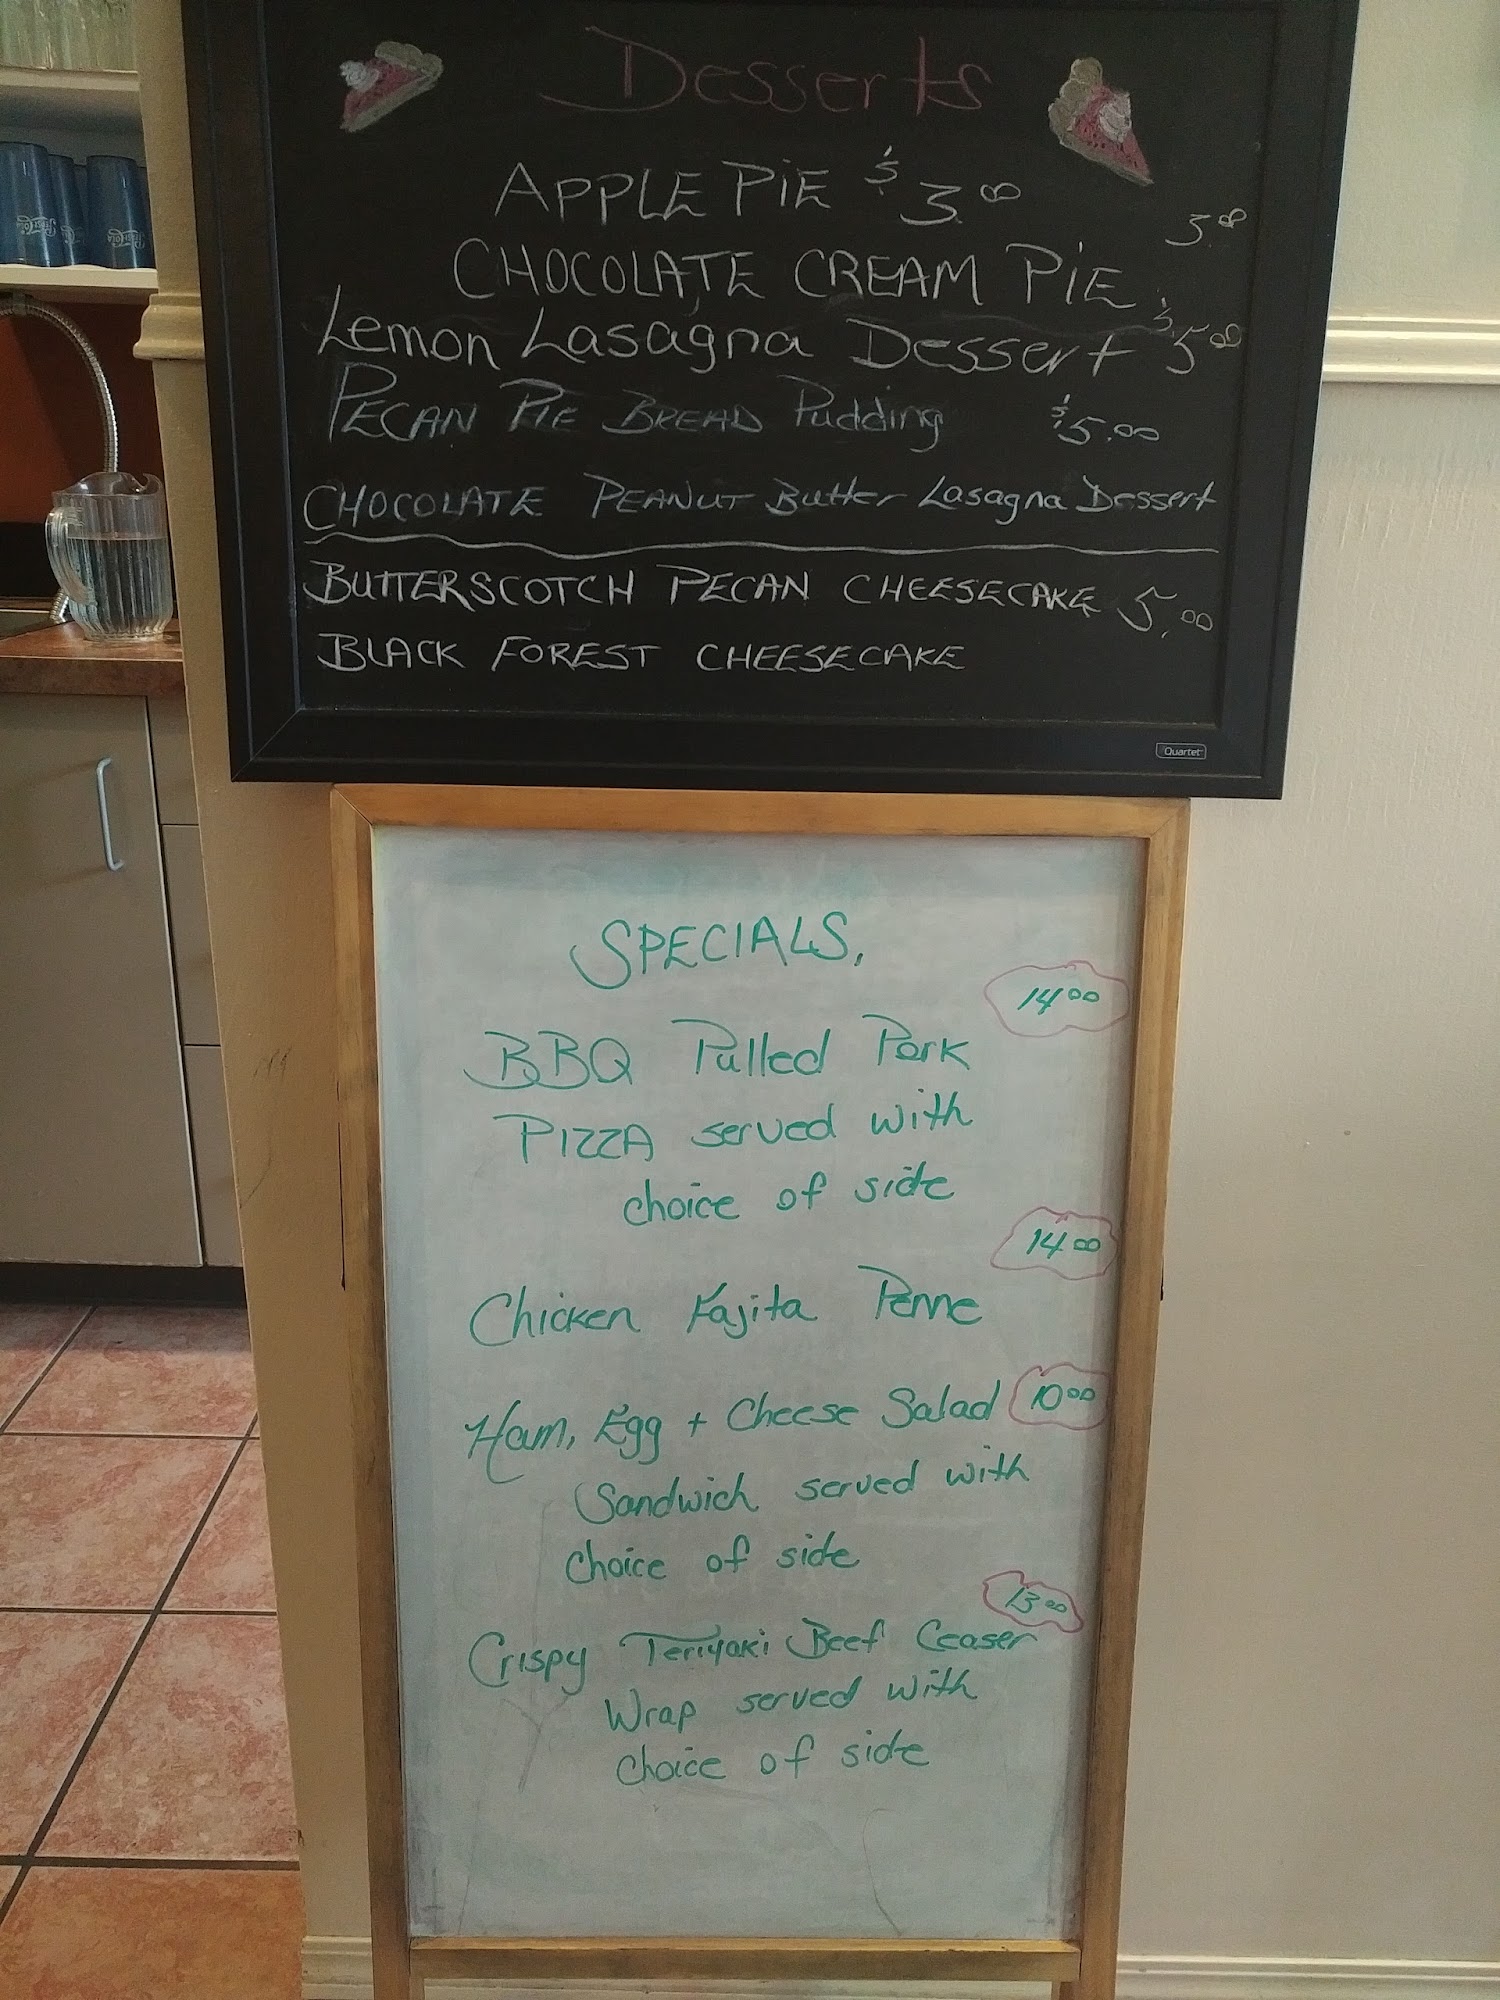 Desserts
APPLE PiE $3.00
3.00
CHOCOLATE CREAM PiE
Lemon Lasagna Dessert $5.00
PECAN PIE BREAD Pudding $5.00
CHOCOLATE PEANUT Butter Lasagna Dessert
BUTTERSCOTCH PECAN CHEESECAKE 5.00
BLACK FOREST CHEESECAKE
Quartet
SPECIALS,
14.00
BBQ Pulled Pork
PIZZA served with
choice of side
14.00
Chicken Fajita Penne
Ham, Egg + Cheese Salad 10.00
Sandwich served with
choice of side
13.00
Crispy Teriyaki Beef Ceaser
Wrap served with
choice of side